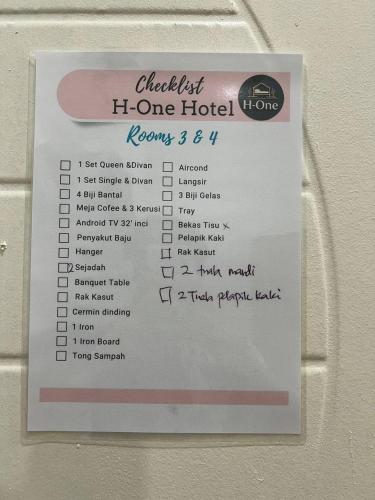 Checklist
H-One Hotel
H-One
Rooms 3 & 4
1 Set Queen &Divan
1 Set Single & Divan
4 Biji Bantal
Meja Cofee & 3 Kerusi
Android TV 32' inci
Penyakut Baju
Hanger
2 Sejadah
Banquet Table
Rak Kasut
Cermin dinding
1 Iron
1 Iron Board
Tong Sampah
Aircond
Langsir
3 Biji Gelas
Tray
Bekas Tisu x
Pelapik Kaki
Rak Kasut
2 tuala mandi
2 Tuala pelapik kaki